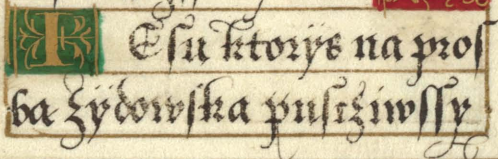 IEsu ktorÿs na pros
ba Zÿdowska puscziwssy